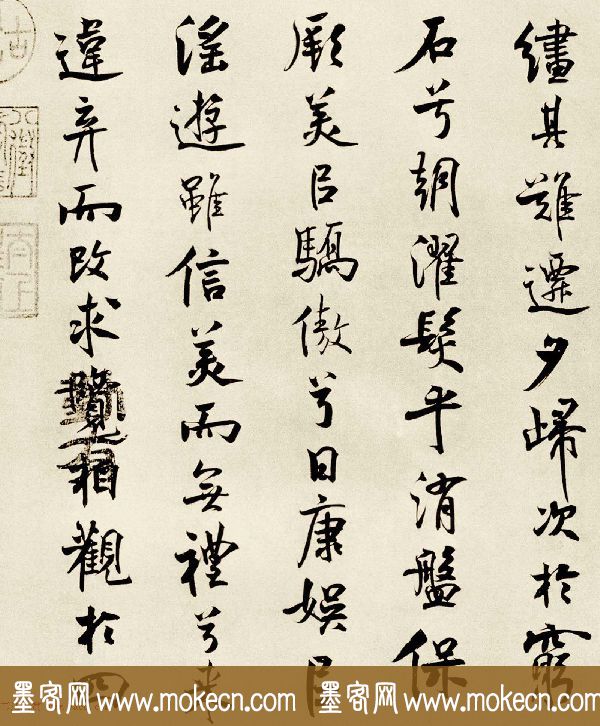 繣其難遷夕歸次於窮
石兮朝濯髮乎洧盤保
厥美㠯驕傲兮日康娛㠯
淫遊雖信美而無禮兮来
違棄而改求覽相觀於四
墨客网 www.mokecn.com 墨客网 www.mokecn.com